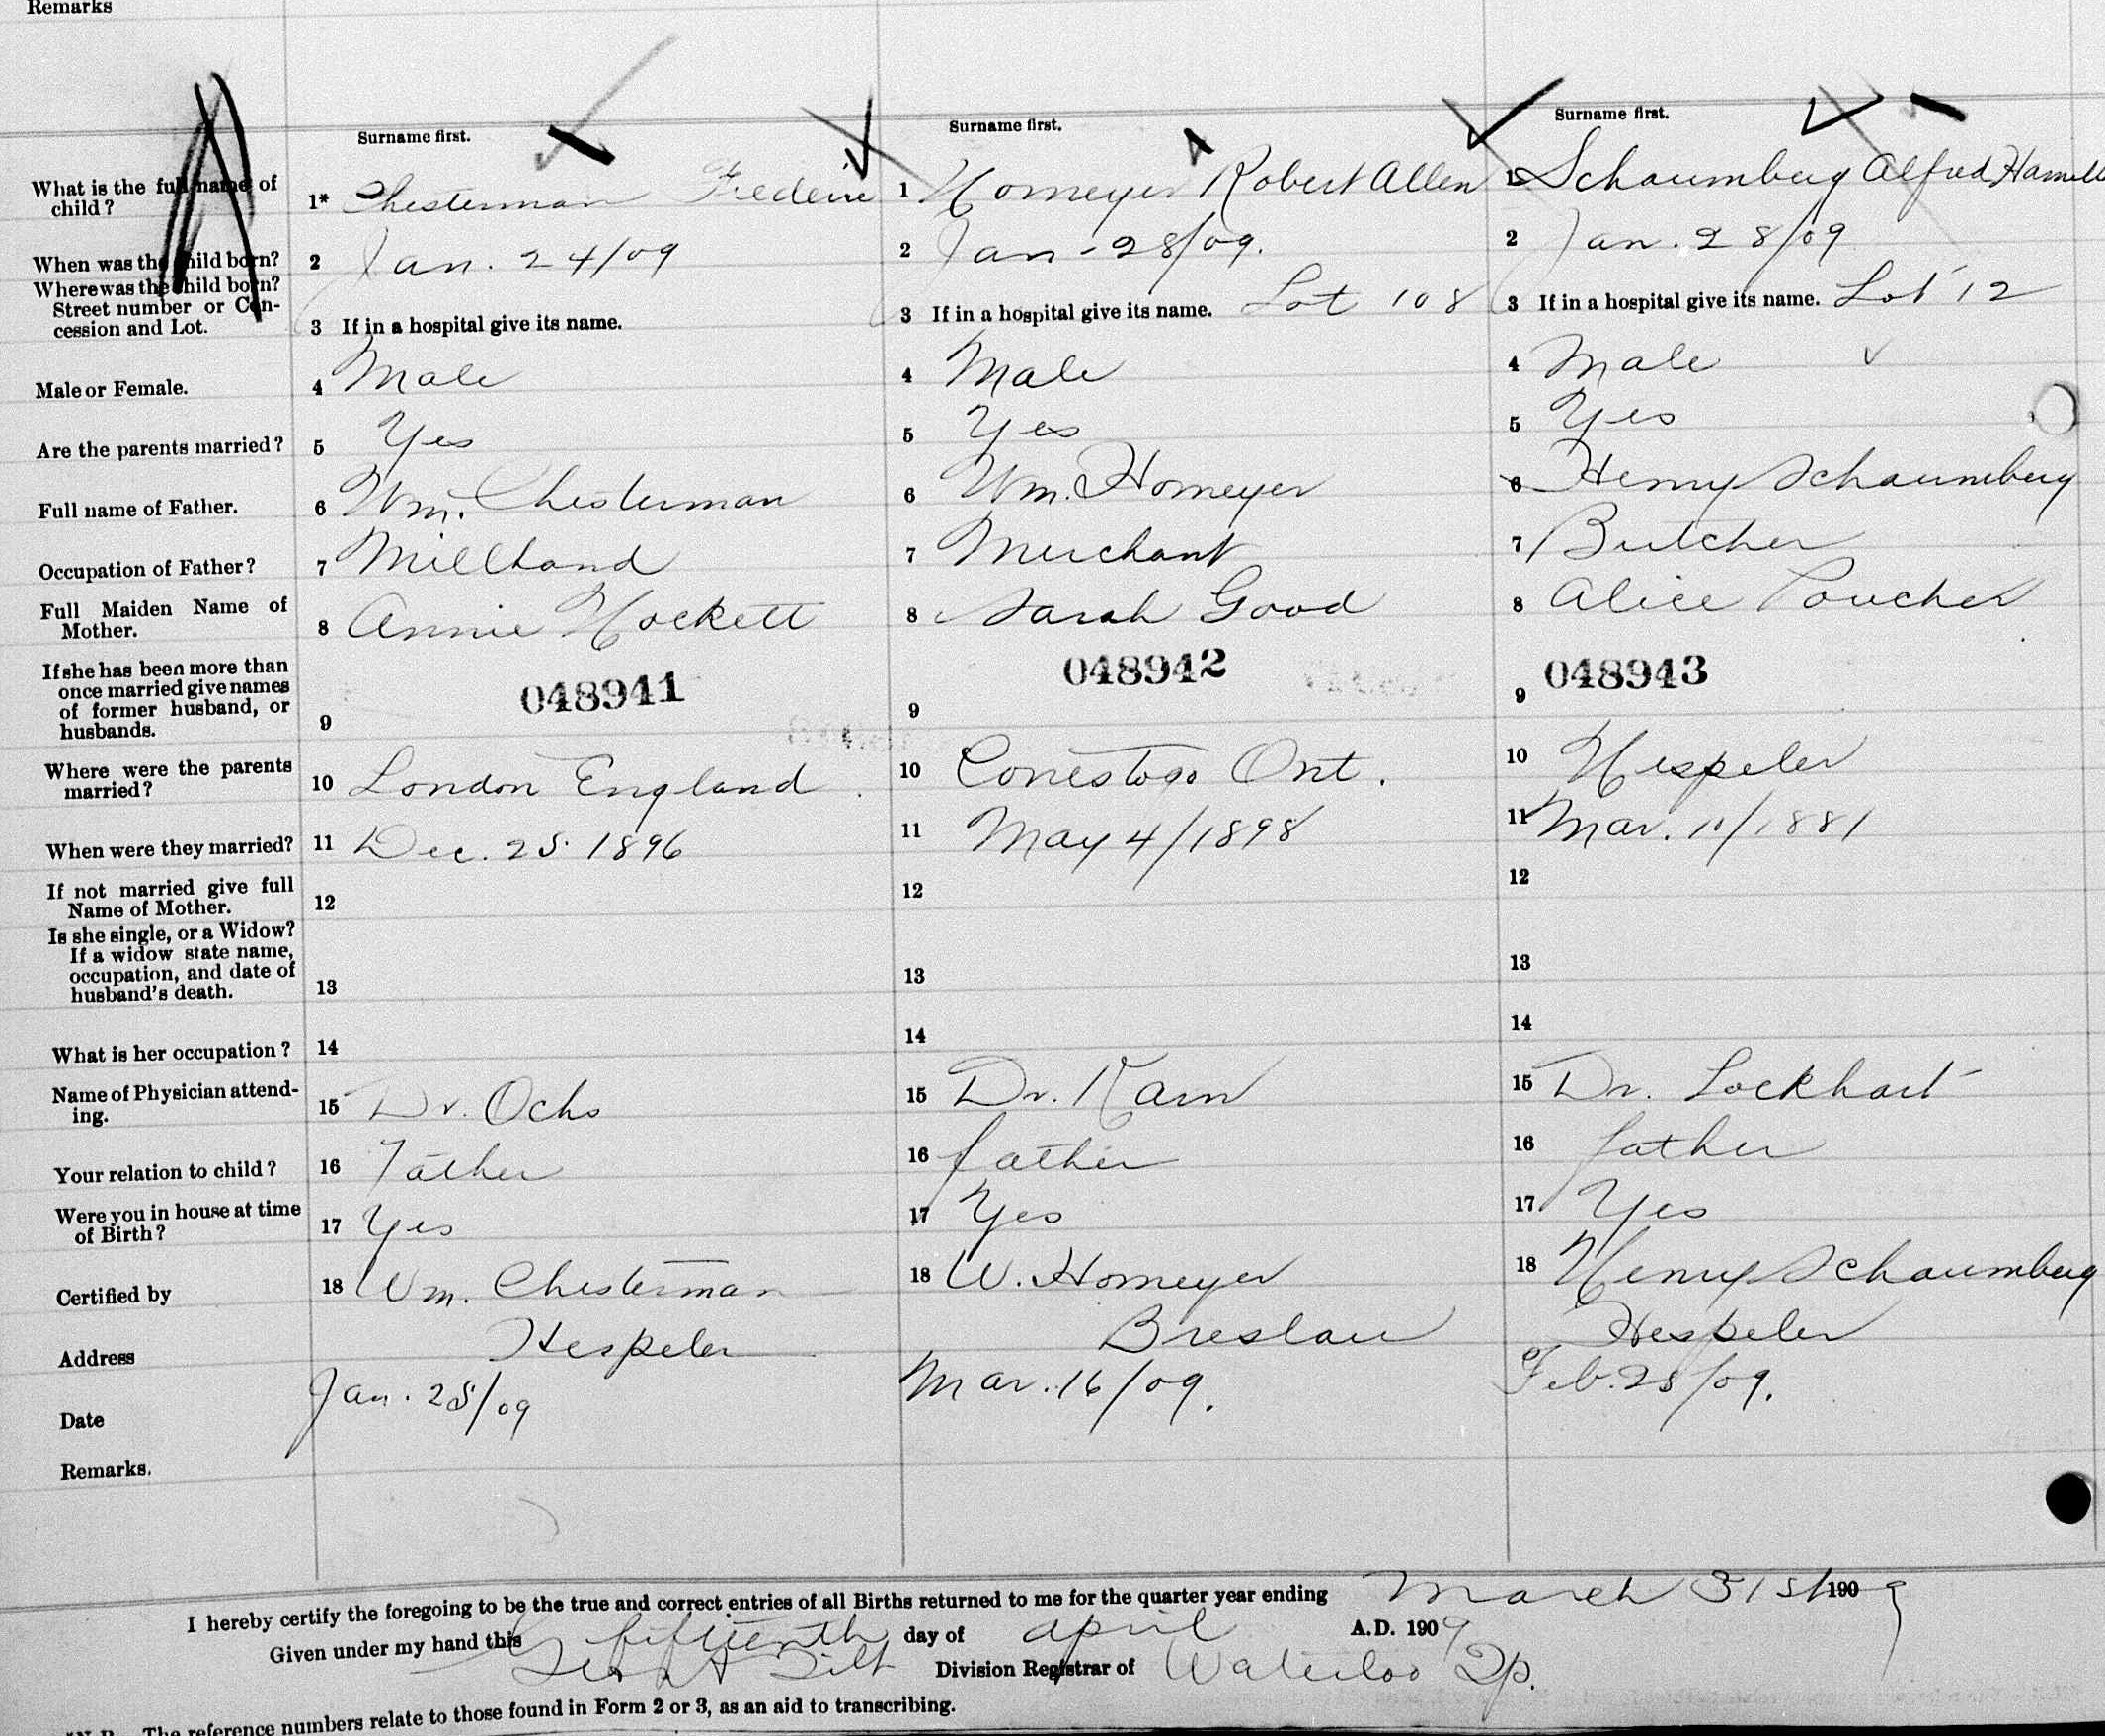 Remarks
Surname first.
Surname first.
Surname first.
What is the full name of child?
1* Chesterman Frederic
1 Homeyer Robert Allen
1 Schaumberg Alfred
When was the child born?
2 Jan. 24/09
2 Jan-28/09.
2 Jan. 28/09
Where was the child born? Street number or Concession and Lot.
3 If in a hospital give its name.
3 If in a hospital give its name. Lot 108
3 If in a hospital give its name. Lot 12
Male or Female.
4 Male
4 Male
4 Male
Are the parents married?
5 Yes
5 Yes
5 Yes
Full name of Father.
6 Wm. Chesterman
6 Wm. Homeyer
6 Henry Schaumberg
Occupation of Father?
7 Millhand
7 Merchant
7 Butcher
Full Maiden Name of Mother.
8 Annie Hockett
8 Sarah Good
8 Alice Poucher
If she has been more than once married give names of former husband, or husbands.
9 048941
9 048942
9 048943
Where were the parents married?
10 London England.
10 Conestogo Ont.
10 Hespeler
When were they married?
11 Dec. 25. 1896
11 May 4/1898
11 Mar. 10/1881
If not married give full Name of Mother.
12
12
12
Is she single, or a Widow? If a widow state name, occupation, and date of husband's death.
13
13
13
What is her occupation?
14
14
14
Name of Physician attending.
15 Dr. Ochs
15 Dr. Karn
15 Dr. Lockhart
Your relation to child?
16 Father
16 father
16 father
Were you in house at time of Birth?
17 Yes
17 Yes
17 Yes
Certified by
18 Wm. Chesterman
18 W. Homeyer
18 Henry Schaumberg
Address
Hespeler
Breslau
Hespeler
Date
Jan. 25/09
Mar. 16/09.
Feb. 25/09.
Remarks.
I hereby certify the foregoing to be the true and correct entries of all Births returned to me for the quarter year ending March 31st 1909
Given under my hand this fifteenth day of April A.D. 1909
Tilt Division Registrar of Waterloo Tp.
The reference numbers relate to those found in Form 2 or 3, as an aid to transcribing.